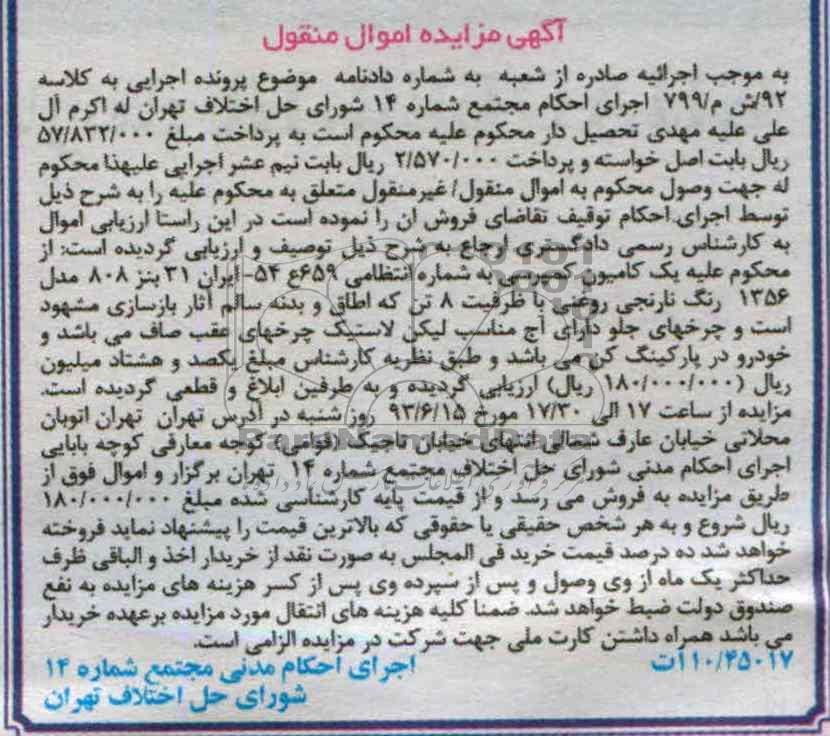 آگهی مزایده اموال منقول
به موجب اجرائیه صادره از شعبه به شماره دادنامه موضوع پرونده اجرایی به کلاسه
۹۲/ش م/۷۹۹ اجرای احکام مجتمع شماره ۱۴ شورای حل اختلاف تهران له اکرم آل
علی علیه مهدی تحصیل دار محکوم علیه محکوم است به پرداخت مبلغ ۵۷/۸۳۲/۰۰۰
ریال بابت اصل خواسته و پرداخت ۲/۵۷۰/۰۰۰ ریال بابت نیم عشر اجرایی علیهذا محکوم
له جهت وصول محکوم به اموال منقول/ غیرمنقول متعلق به محکوم علیه را به شرح ذیل
توسط اجرای احکام توقیف تقاضای فروش ان را نموده است در این راستا ارزیابی اموال
به کارشناس رسمی دادگستری ارجاع به شرح ذیل توصیف و ارزیابی گردیده است: از
محکوم علیه یک کامیون کمپرسی به شماره انتظامی ۶۵۹ع ۵۴- ایران ۳۱ بنز ۸۰۸ مدل
۱۳۵۶ رنگ نارنجی روغنی با ظرفیت ۸ تن که اطاق و بدنه سالم آثار بازسازی مشهود
است و چرخهای جلو دارای آج مناسب لیکن لاستیک چرخهای عقب صاف می باشد و
خودرو در پارکینگ کن می باشد و طبق نظریه کارشناس مبلغ یکصد و هشتاد میلیون
ریال (۱۸۰/۰۰۰/۰۰۰ ریال) ارزیابی گردیده و به طرفین ابلاغ و قطعی گردیده است.
مزایده از ساعت ۱۷ الی ۱۷/۳۰ مورخ ۹۳/۶/۱۵ روز شنبه در آدرس تهران تهران اتوبان
محلاتی خیابان عارف شمالی انتهای خیابان تاجیک (قوامی) کوچه معارفی کوچه بابایی
اجرای احکام مدنی شورای حل اختلاف مجتمع شماره ۱۴ تهران برگزار و اموال فوق از
طریق مزایده به فروش می رسد و از قیمت پایه کارشناسی شده مبلغ ۱۸۰/۰۰۰/۰۰۰
ریال شروع و به هر شخص حقیقی یا حقوقی که بالاترین قیمت را پیشنهاد نماید فروخته
خواهد شد ده درصد قیمت خرید فی المجلس به صورت نقد از خریدار اخذ و الباقی ظرف
حداکثر یک ماه از وی وصول و پس از سپرده وی پس از کسر هزینه های مزایده به نفع
صندوق دولت ضبط خواهد شد. ضمنا کلیه هزینه های انتقال مورد مزایده برعهده خریدار
می باشد همراه داشتن کارت ملی جهت شرکت در مزایده الزامی است.
۱۱۰/۴۵۰۱۷ت
اجرای احکام مدنی مجتمع شماره ۱۴
شورای حل اختلاف تهران
ParsNamadData